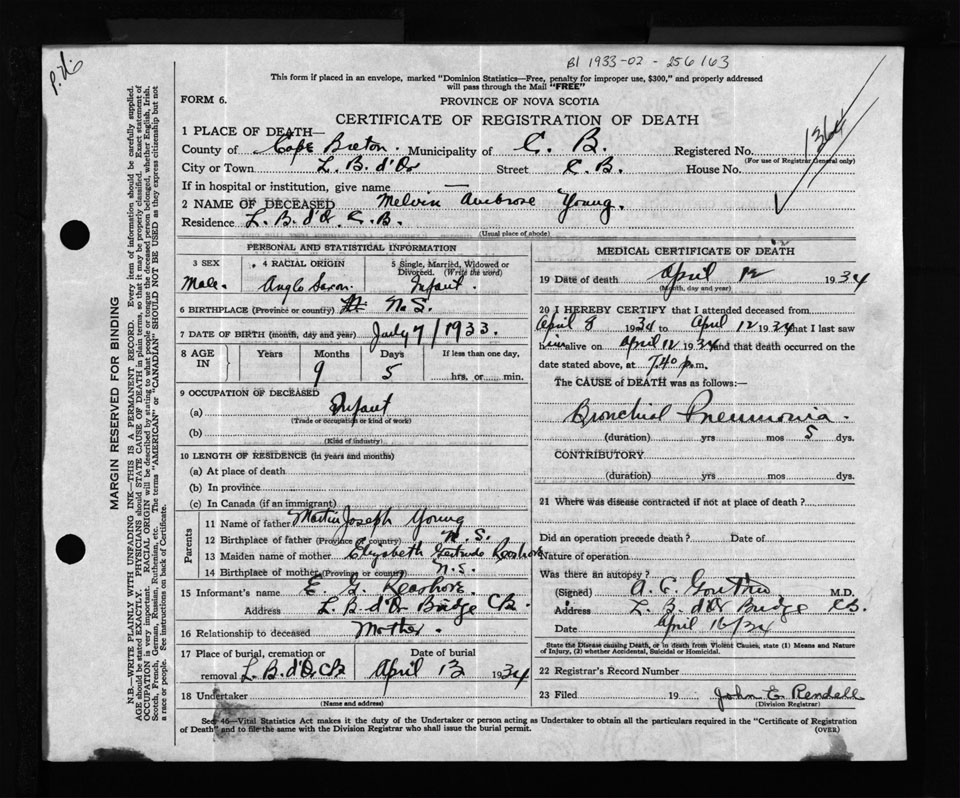 P.No.
B1 1933-02-256163
This form if placed in an envelope, marked "Dominion Statistics—Free, penalty for improper use, $300," and properly addressed
will pass through the Mail "FREE"
FORM 6.
PROVINCE OF NOVA SCOTIA
CERTIFICATE OF REGISTRATION OF DEATH
1364
1 PLACE OF DEATH—
County of Cape Breton. Municipality of C. B. Registered No.
(For use of Registrar General only)
City or Town L. B. d'Or Street C. B. House No.
If in hospital or institution, give name —
2 NAME OF DECEASED Melvin Ambrose Young.
Residence L. B. d'Or C.B.
(Usual place of abode)
PERSONAL AND STATISTICAL INFORMATION
3 SEX
Male.
4 RACIAL ORIGIN
Anglo Saxon.
5 Single, Married, Widowed or
Divorced. (Write the word)
Infant.
6 BIRTHPLACE (Province or country) N.S.
7 DATE OF BIRTH (month, day and year) July 7/1933.
8 AGE IN
Years Months Days If less than one day,
9 5 hrs, or min.
9 OCCUPATION OF DECEASED
(a) Infant
(Trade or occupation or kind of work)
(b)
(Kind of industry)
10 LENGTH OF RESIDENCE (in years and months)
(a) At place of death
(b) In province
(c) In Canada (if an immigrant)
Parents
11 Name of father Martin Joseph Young
12 Birthplace of father (Province or country) N.S.
13 Maiden name of mother Elizabeth Gertrude
14 Birthplace of mother (Province or country) N.S.
15 Informant's name E. G.
Address L. B. d'Or Bridge CB.
16 Relationship to deceased Mother.
17 Place of burial, cremation or
removal L. B. d'Or CB
Date of burial
April 13 1934
18 Undertaker
(Name and address)
MEDICAL CERTIFICATE OF DEATH
19 Date of death April 12 1934
(Month, day and year)
20 I HEREBY CERTIFY that I attended deceased from
April 8 1934 to April 12 1934 that I last saw
him alive on April 12 1934 and that death occurred on the
date stated above, at 7.40 p.m.
The CAUSE of DEATH was as follows:—
Bronchial Pneumonia.
(duration) yrs mos 5 dys.
CONTRIBUTORY
(duration) yrs mos dys.
21 Where was disease contracted if not at place of death?
Did an operation precede death? Date of
Nature of operation
Was there an autopsy?
(Signed) A. C. M.D.
Address L. B. d'Or Bridge CB.
Date April 16/34
State the Disease causing Death, or in death from Violent Causes, state (1) Means and Nature
of Injury, (2) whether Accidental, Suicidal or Homicidal.
22 Registrar's Record Number
23 Filed 19 John E. Rendall
(Division Registrar)
Sec 46—Vital Statistics Act makes it the duty of the Undertaker or person acting as Undertaker to obtain all the particulars required in the "Certificate of Registration
of Death" and to file the same with the Division Registrar who shall issue the burial permit.
(OVER)
MARGIN RESERVED FOR BINDING
N.B.—WRITE PLAINLY WITH UNFADING INK—THIS IS A PERMANENT RECORD. Every item of information should be carefully supplied.
AGE should be stated EXACTLY. PHYSICIANS should STATE CAUSE OF DEATH in plain terms, so that it may be properly classified. Exact statement of
OCCUPATION is very important. RACIAL ORIGIN will be described by stating to what people or tongue the deceased person belonged, whether English, Irish,
Scotch, French, German, Russian, Ruthenian, etc. The terms "AMERICAN" or "CANADIAN" SHOULD NOT BE USED as they express citizenship but not
a race or people. See instructions on back of Certificate.